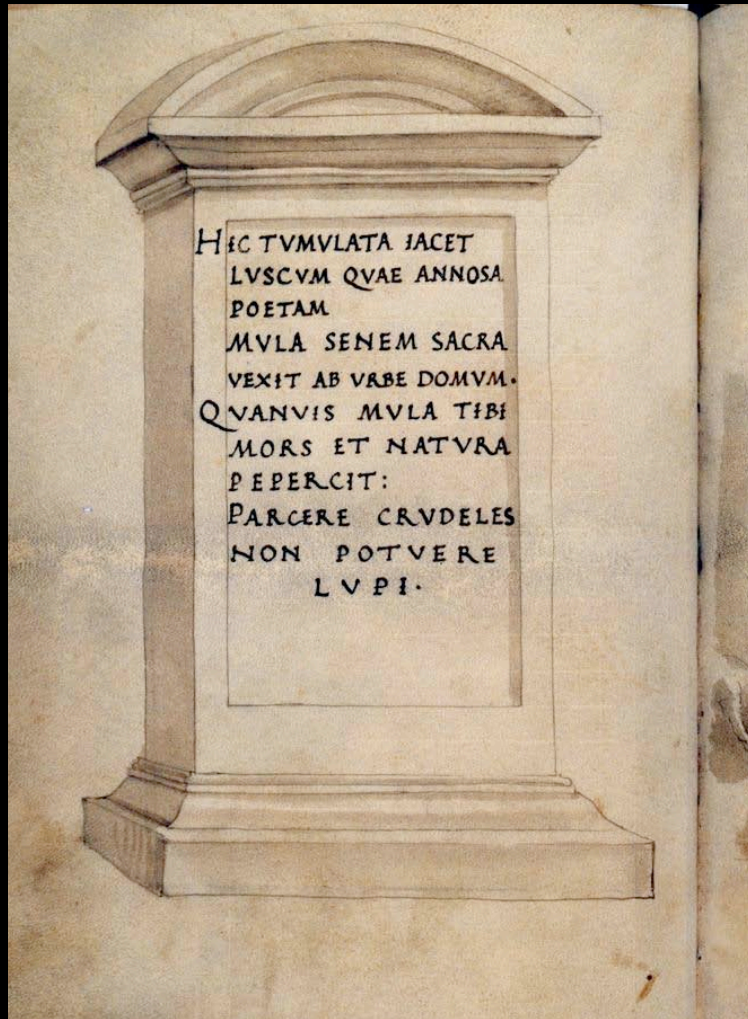 HIC TVMVLATA IACET
LVSCVM QVAE ANNOSA
POETAM
MVLA SENEM SACRA
VEXIT AB VRBE DOMVM.
QVANVIS MVLA TIBI
MORS ET NATVRA
PEPERCIT:
PARCERE CRVDELES
NON POTVERE
LVPI.